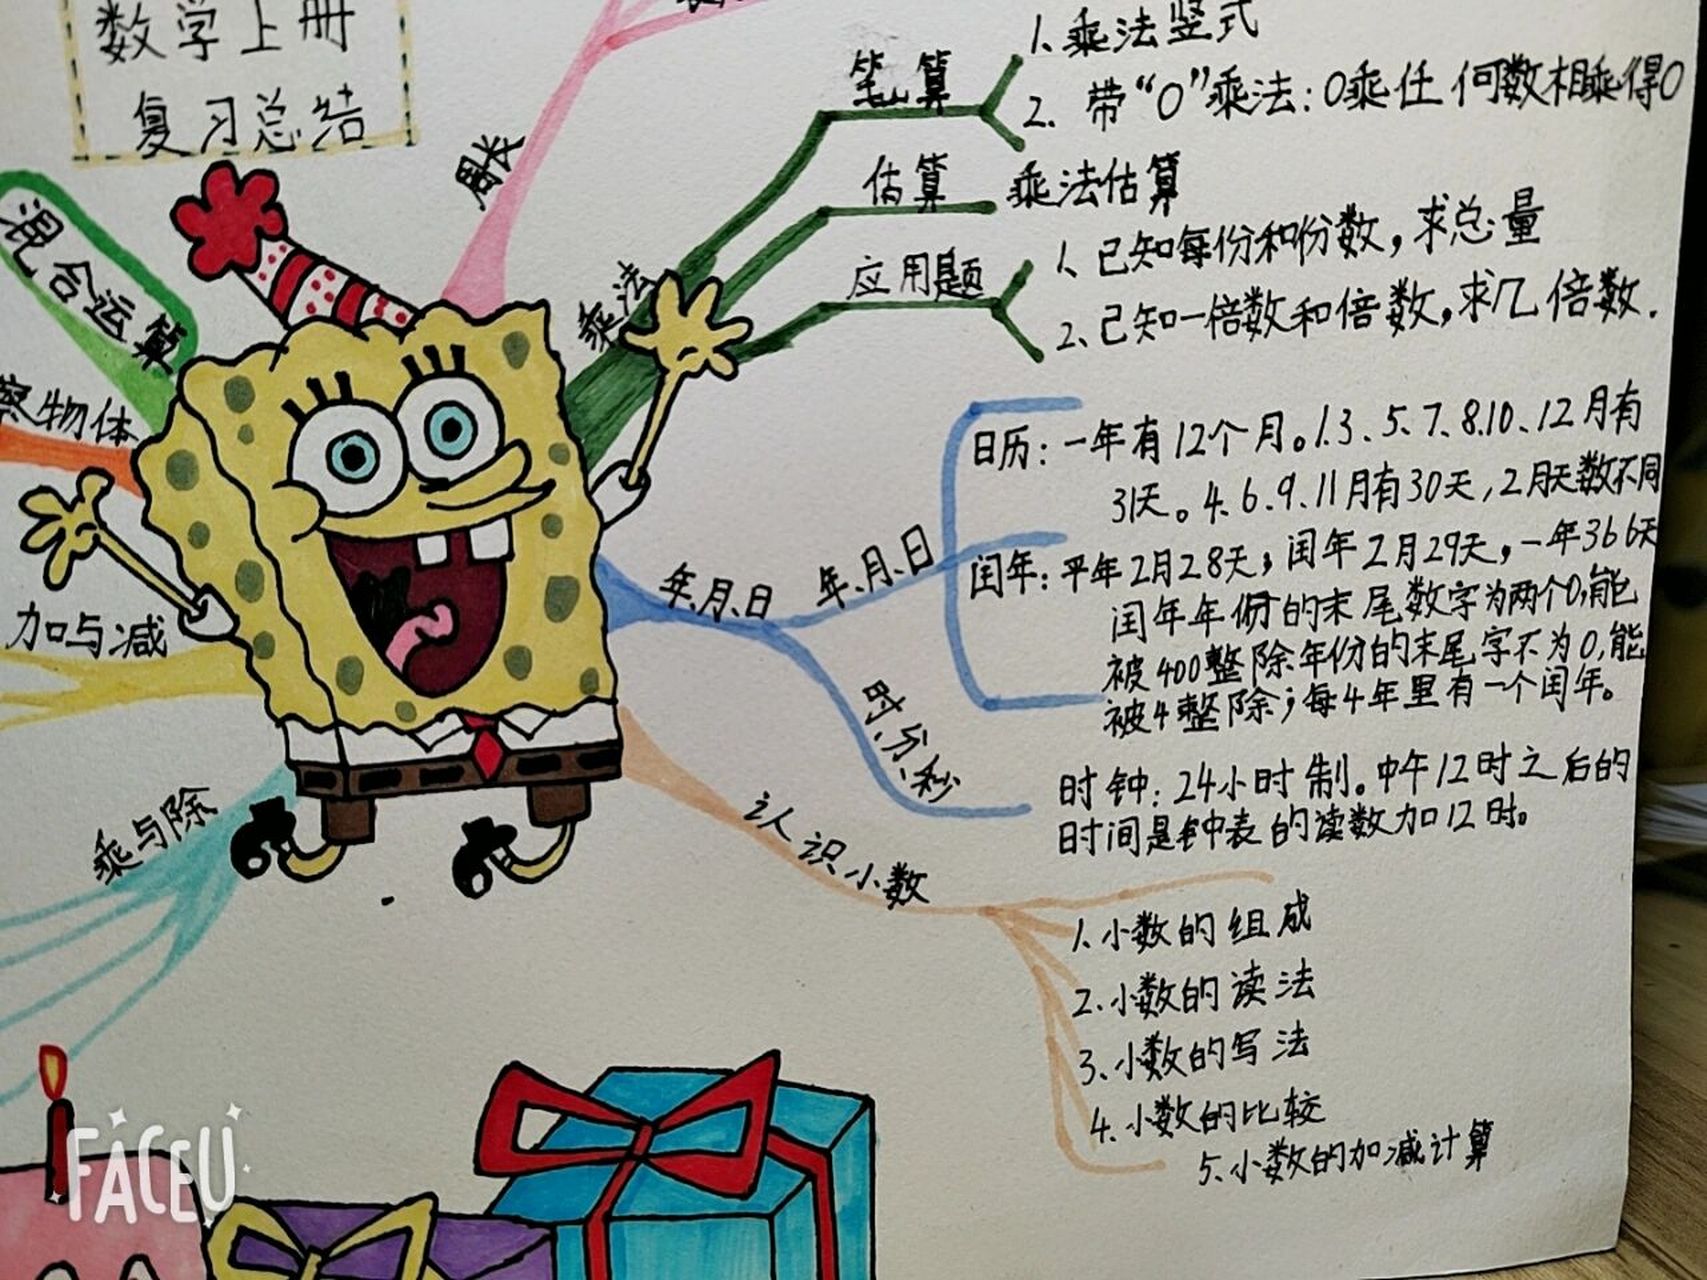 数学上册
复习总结
混合运算
物体
加与减
乘与除
周长
乘法
笔算
1.乘法竖式
2. 带“0”乘法:0乘任何数相乘得0
估算
乘法估算
应用题
1.已知每份和份数,求总量
2.已知一倍数和倍数,求几倍数.
年、月、日
年、月、日
日历:一年有12个月。1.3、5、7、8.10、12月有
31天。4.6.9.11月有30天,2月天数不同
闰年:平年2月28天,闰年2月29天,一年366天
闰年年份的末尾数字为两个0,能
被400整除年份的末尾字不为0,能
被4整除;每4年里有一个闰年。
时、分、秒
时钟:24小时制。中午12时之后的
时间是钟表的读数加12时。
认识小数
1.小数的组成
2.小数的读法
3.小数的写法
4.小数的比较
5.小数的加减计算
FACEU